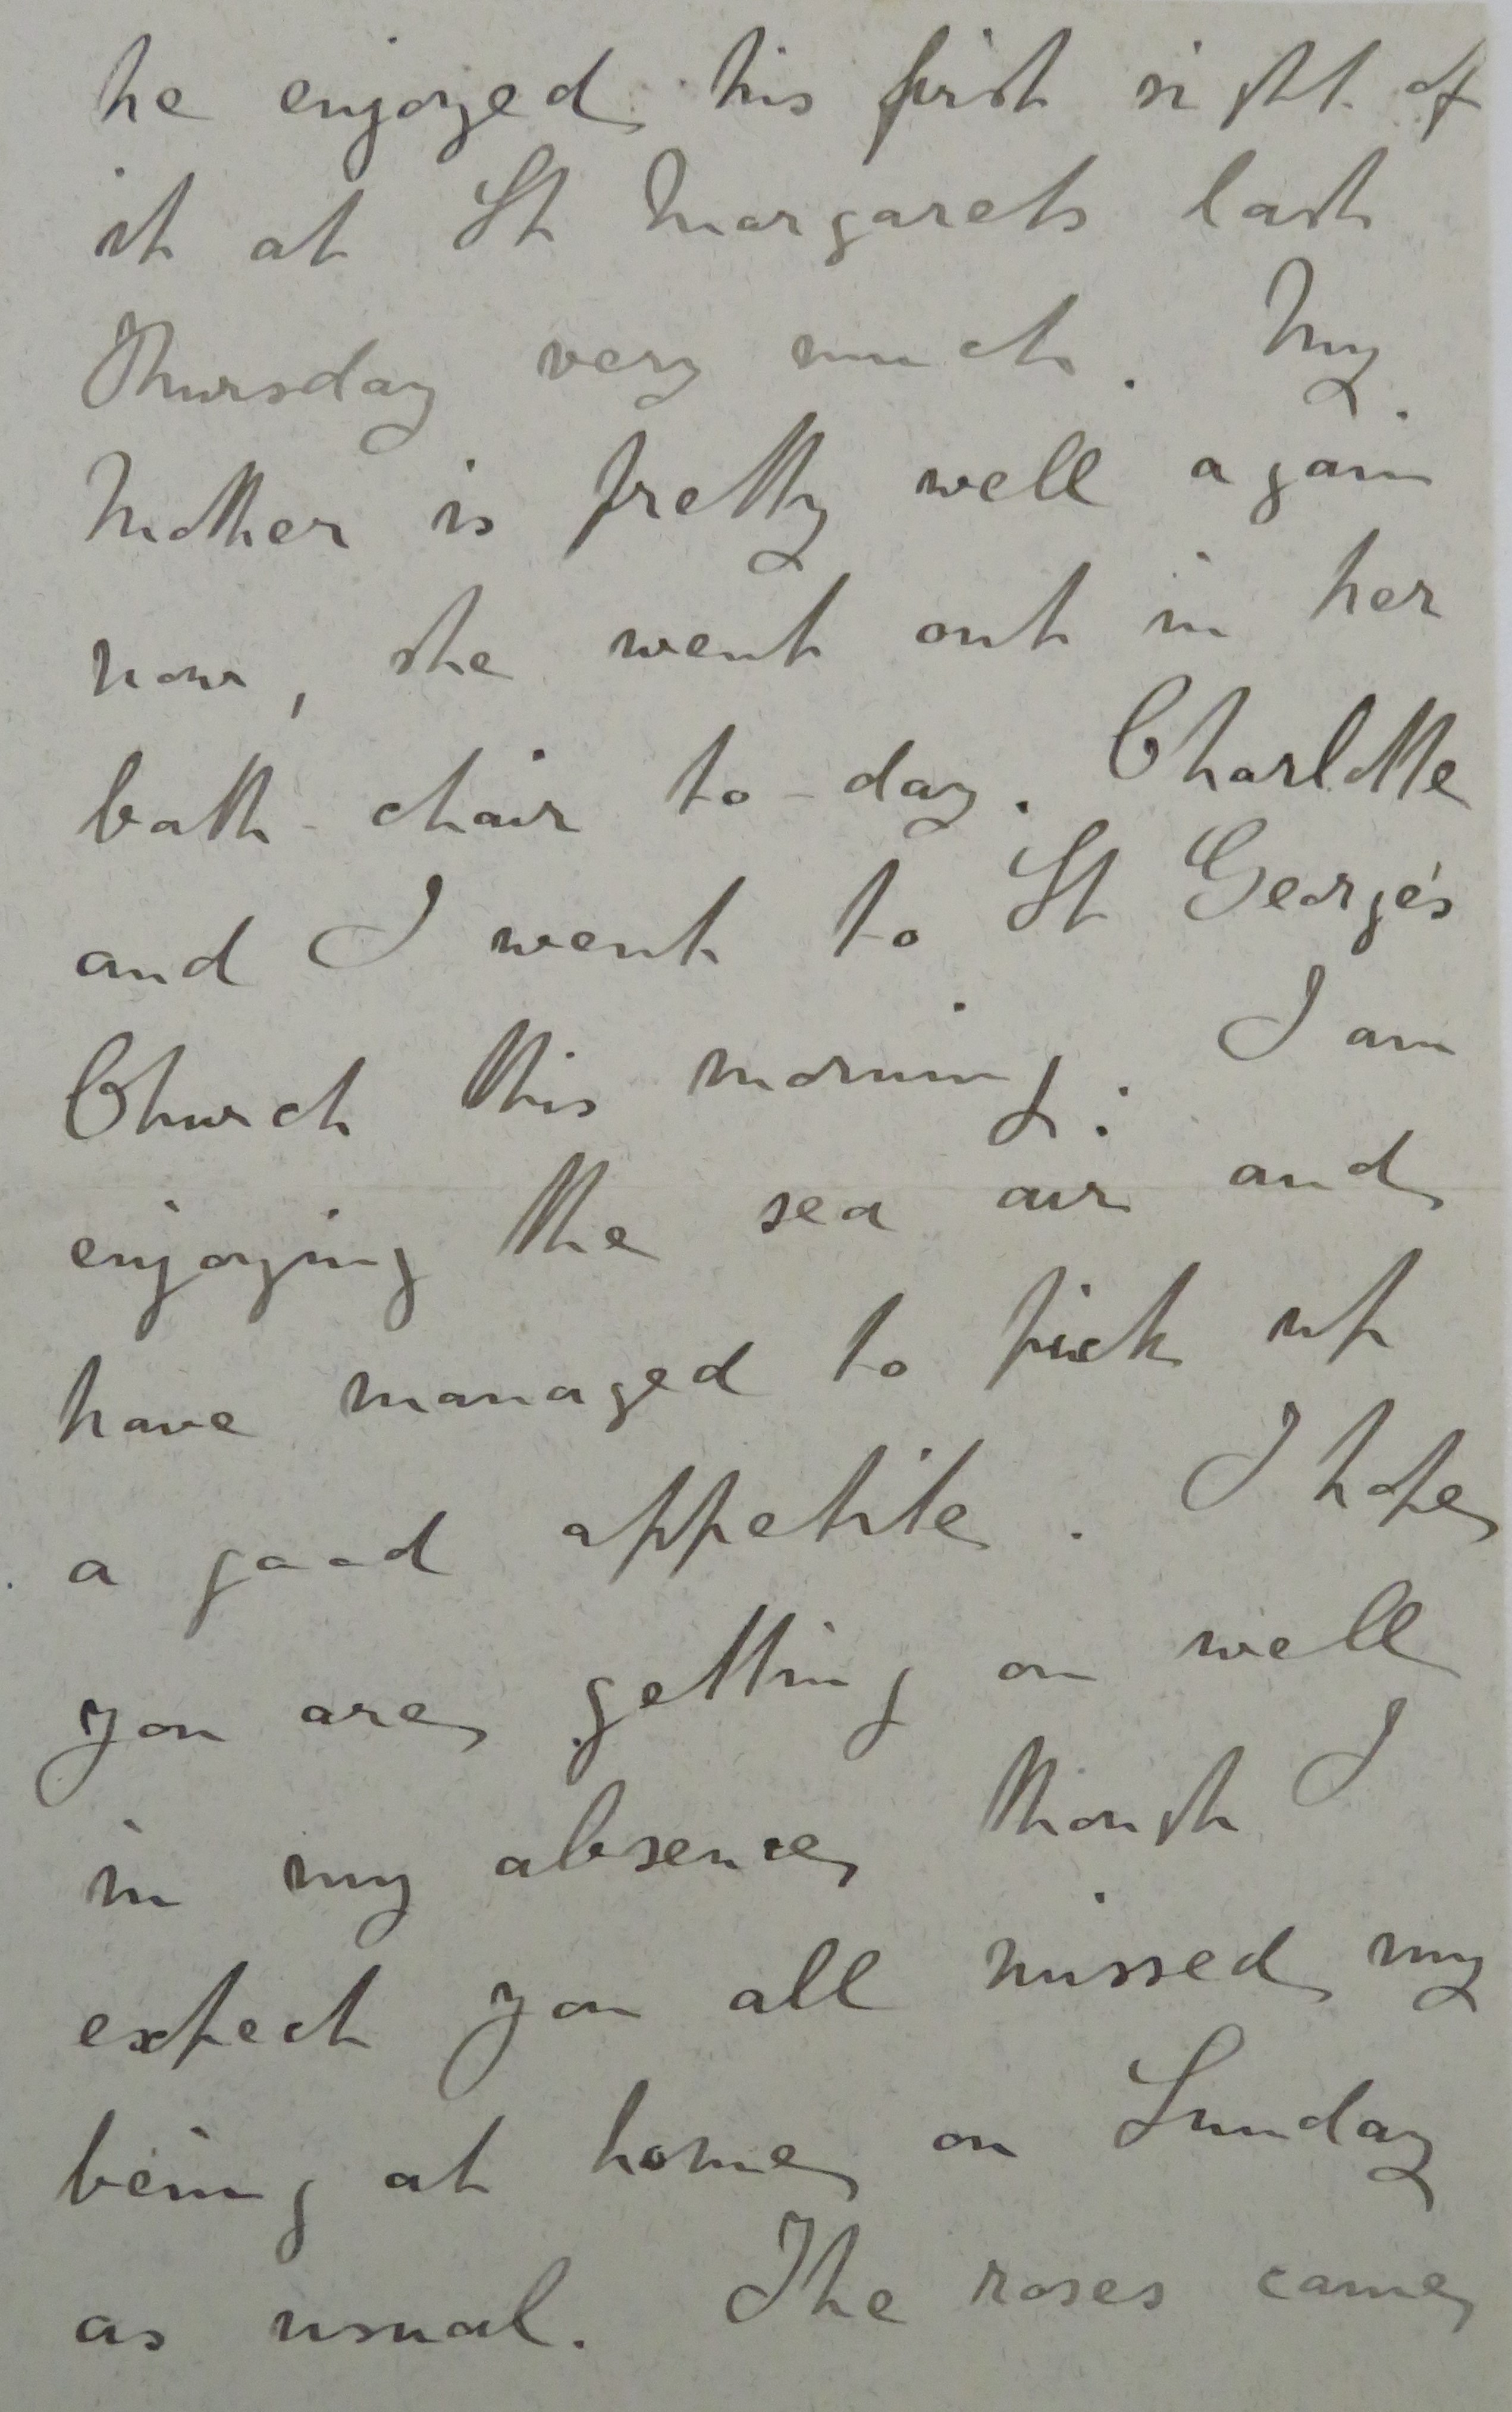 he enjoyed his first sight of
it at St Margarets last
Thursday very much. My
Mother is pretty well again
now, she went out in her
bath-chair to-day. Charlotte
and I went to St George's
Church this morning. I am
enjoying the sea air and
have managed to pick up
a good appetite. I hope
you are getting on well
in my absence though I
expect you all missed my
being at home on Sunday
as usual. The roses came